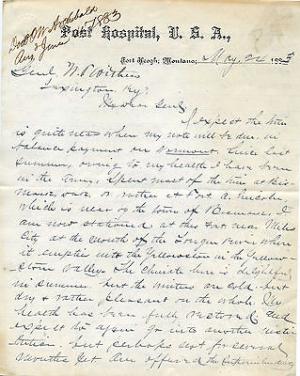 1883
Post Hospital, U. S. A.,
Fort Keogh, Montana, May 24 188
Genl. W
Lexington Ky.
Dear Genl
I expect the time
is quite near when my note will be due in
balance payment on Since last
summer, owing to my health I have been
in the Spent most of the time at Bis-
marck, or rather at Fort A. Lincoln
which is near the town of Bismarck. I
am now stationed at this Fort near Miles
City at the mouth of the Tongue river where
it empties into the Yellowstone in the Yellow-
stone Valley. The climate here is delightful
in summer. but the winters are cold. but
dry & rather pleasant on the whole. My
health has been fully restored, and
expect to again go into another insti-
tution. but perhaps not for several
months yet. Am offered the